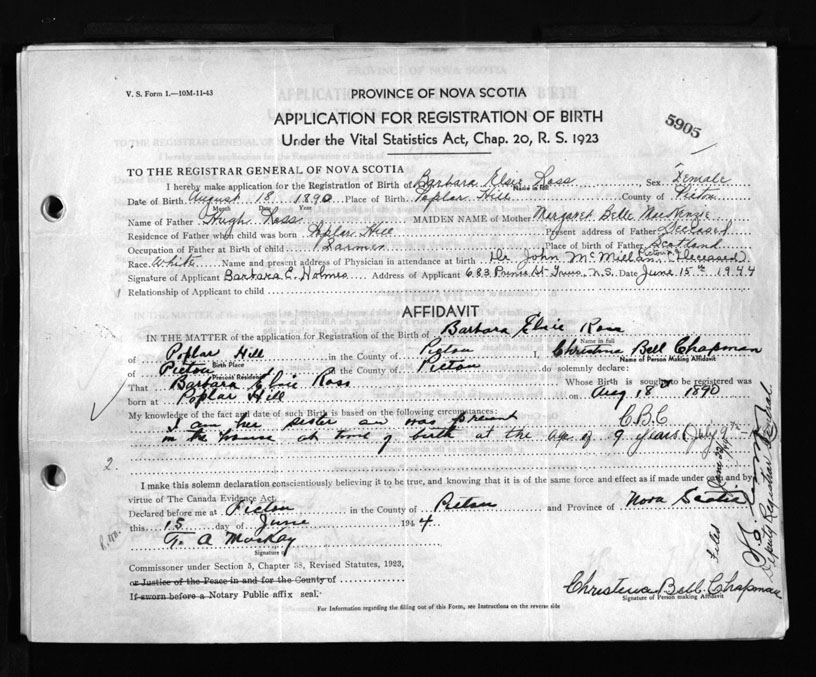 V. S. Form 1.—10M-11-43
PROVINCE OF NOVA SCOTIA
5905
APPLICATION FOR REGISTRATION OF BIRTH
Under the Vital Statistics Act, Chap. 20, R. S. 1923
TO THE REGISTRAR GENERAL OF NOVA SCOTIA
I hereby make application for the Registration of Birth of Barbara Elsie Ross Sex Female
Name in full
Date of Birth August 18 1890 Place of Birth Poplar Hill County of Pictou
Month Date Year
Name of Father Hugh Ross MAIDEN NAME of Mother Margaret Belle MacKenzie
Residence of Father when child was born Poplar Hill Present address of Father Deceased
Occupation of Father at Birth of child Farmer Place of birth of Father Scotland
Race White Name and present address of Physician in attendance at birth Dr. John McMillan (Deceased)
Signature of Applicant Barbara E. Holmes Address of Applicant 683 Prince St. Truro, N.S. Date June 15th 1944
1 Relationship of Applicant to child
AFFIDAVIT
IN THE MATTER of the application for Registration of the Birth of Barbara Elsie Ross
Name in full
of Poplar Hill in the County of Pictou I, Christina Bell Chapman
Birth Place Name of Person Making Affidavit
of Pictou in the County of Pictou do solemnly declare:
Present Residence
That Barbara Elsie Ross Whose Birth is sought to be registered was
born at Poplar Hill on Aug 18th 1890
My knowledge of the fact and date of such Birth is based on the following circumstances:
I am her sister an was present C.B.C
in the house at time of birth at the age of 9 years (July 9th
2.
I make this solemn declaration conscientiously believing it to be true, and knowing that it is of the same force and effect as if made under oath and by
virtue of The Canada Evidence Act.
Declared before me at Pictou in the County of Pictou and Province of Nova Scotia
this 15 day of June 1944
A MacKay
Signature
Commissioner under Section 5, Chapter 38, Revised Statutes, 1923,
or Justice of the Peace in and for the County of
If sworn before a Notary Public affix seal.
Christina Bell Chapman
Signature of Person making Affidavit
For Information regarding the filling out of this Form, see Instructions on the reverse side
Filed June
Deputy Registrar General